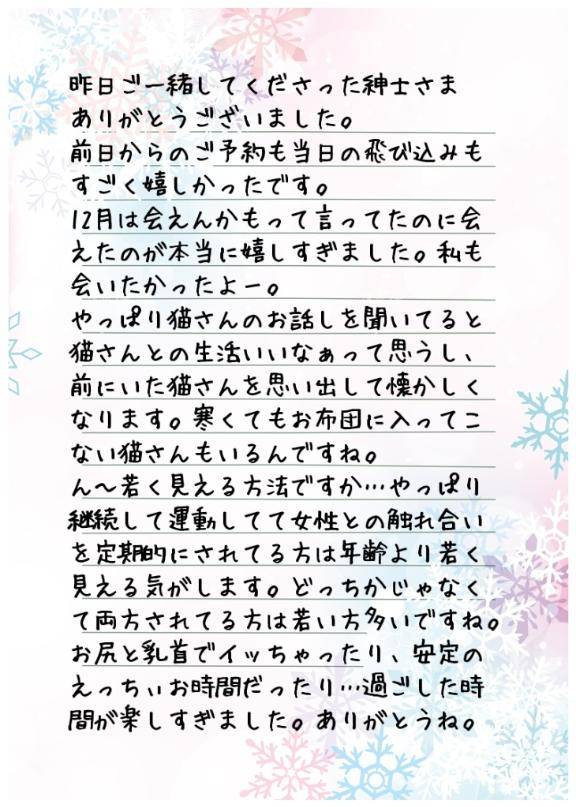 昨日ご一緒してくださった紳士さま
ありがとうございました。
前日からのご予約も当日の飛び込みも
すごく嬉しかったです。
12月は会えんかもって言ってたのに会
えたのが本当に嬉しすぎました。私も
会いたかったよー。
やっぱり猫さんのお話しを聞いてると
猫さんとの生活いいなぁって思うし、
前にいた猫さんを思い出して懐かしく
なります。寒くてもお布団に入ってこ
ない猫さんもいるんですね。
ん〜若く見える方法ですか…やっぱり
継続して運動してて女性との触れ合い
を定期的にされてる方は年齢より若く
見える気がします。どっちかじゃなく
て両方されてる方は若い方多いですね。
お尻と乳首でイッちゃったり、安定の
えっちぃお時間だったり…過ごした時
間が楽しすぎました。ありがとうね。